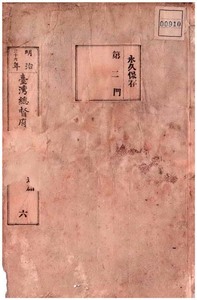 00910
永久保存
第二門
明治
年
臺灣總督府
六